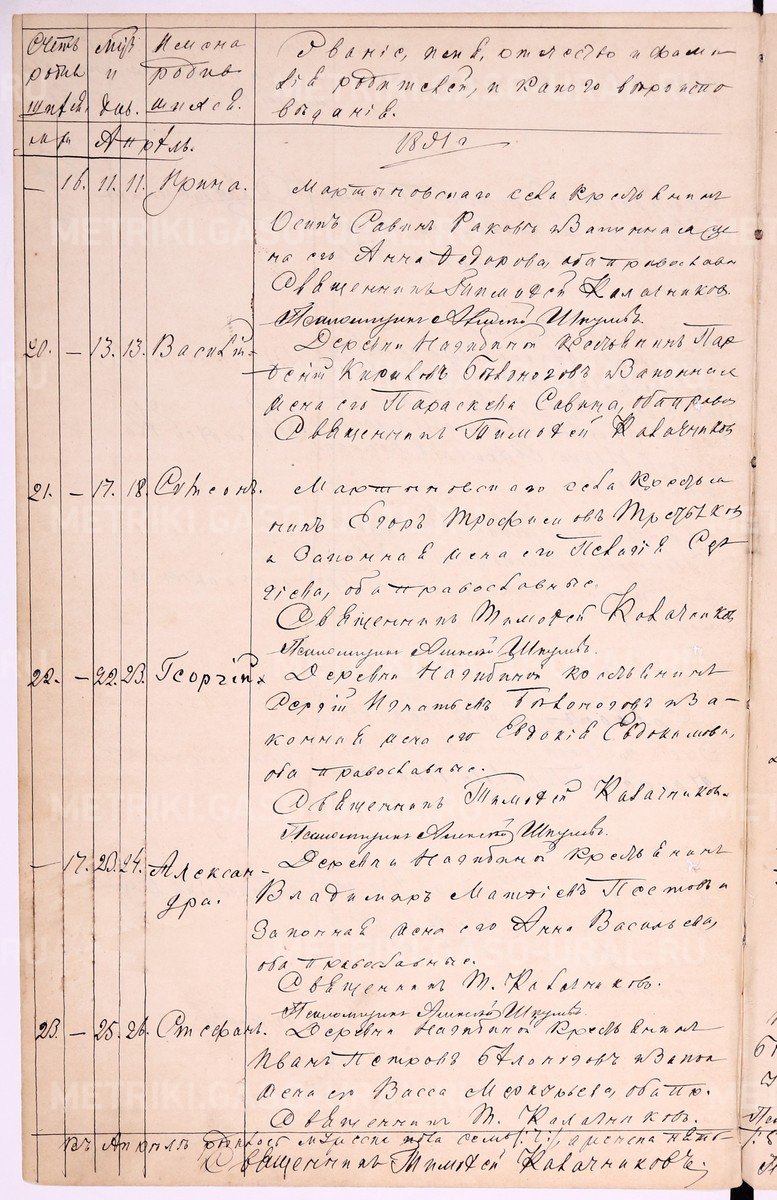 Счетъ Мѣс Имена Званіе, имя, отчество и фами-
родив и родив лія родителей, и какого вѣроиспо
шихся. День. шихся. вѣданія.
Апрѣль. 1891 г
— 16. 11. 11. Ирина. Мартыновскаго села крестьянинъ
Осипъ Савинъ Раковъ и законная же
на его Анна Федорова, оба православн
Священникъ Тимофей Калачниковъ.
Псаломщикъ Алексей Шкулевъ.
20. — 13. 13. Василій. Деревни Надибиной крестьянинъ Пар
феній Кириловъ Бѣлоноговъ и законная
жена его Параскева Савина, оба право
Священникъ Тимофей Калачников
21. — 17. 18. Сѵмеонъ. Мартыновскаго села крестья
нинъ Егоръ Трофимовъ Третьяков
и законная жена его Пелагія Сер
гіева, оба православные.
Священникъ Тимофей Калачников
Псаломщикъ Алексей Шкулевъ.
22. — 22. 23. Георгій. Деревни Надибиной крестьянинъ
Сергій Игнатьевъ Бѣлоноговъ и за-
конная жена его Евдокія Евдокимова,
оба православные.
Священникъ Тимофей Калачников.
Псаломщикъ Алексей Шкулевъ.
— 17. 23. 24. Алексан- Деревни Надибиной крестьянинъ
дра. Владимиръ Матфіевъ и
законная жена его Анна Васильева,
оба православные.
Священникъ Т. Калачниковъ.
Псаломщикъ Алексей Шкулевъ.
23. — 25. 26. Стефанъ. Деревни Надибиной крестьянинъ
Иванъ Петровъ Бѣлоногов и закон
жена его Васса Меркурьева, оба пр.
Священникъ Т. Калачниковъ.
Въ Апрѣлѣ мѣсяцѣ пола семь
Священникъ Тимофей Калачниковъ.
METRIKI.GA